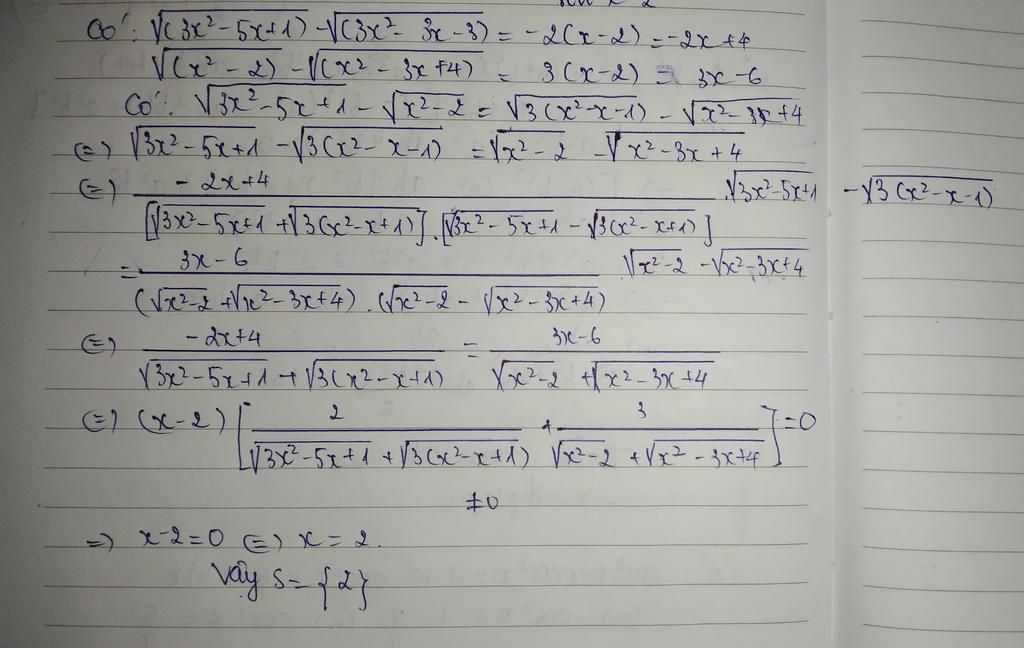 Có: √(3x²-5x+1) - √(3x²- 3x-3) = -2(x-2) = -2x+4
√(x²-2) - √(x²-3x+4) = 3(x-2) = 3x-6
Có: √3x²-5x+1 - √x²-2 = √3(x²-x-1) - √x²-3x+4
(=) √3x²-5x+1 - √3(x²-x-1) = √x²-2 - √x²-3x+4
(=) -2x+4 / [√3x²-5x+1 + √3(x²-x+1)].[√3x²-5x+1 - √3(x²-x+1)] . √3x²-5x+1 - √3(x²-x-1)
= 3x-6 / (√x²-2 + √x²-3x+4).(√x²-2 - √x²-3x+4) √x²-2 - √x²-3x+4
(=) -2x+4 / √3x²-5x+1 + √3(x²-x+1) = 3x-6 / √x²-2 + √x²-3x+4
(=) (x-2) [2 / √3x²-5x+1 + √3(x²-x+1) + 3 / √x²-2 + √x²-3x+4] = 0
≠0
=) x-2=0 (=) x=2.
Vậy S={2}